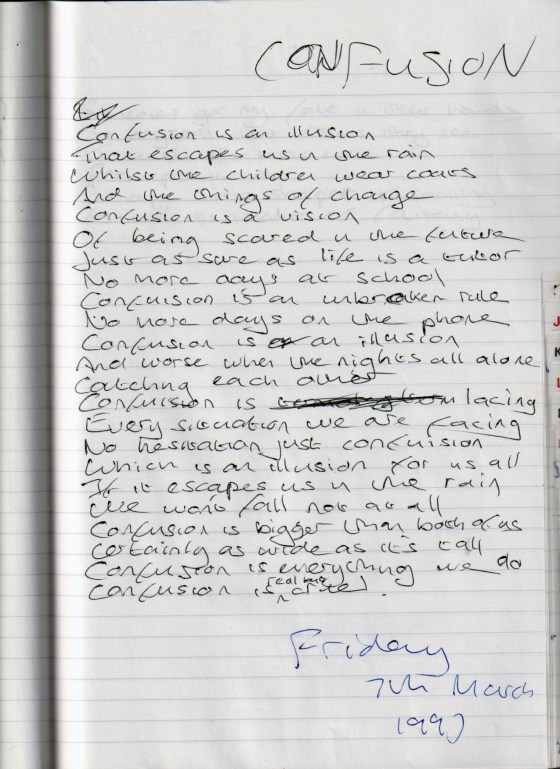 CONFUSION
Confusion is an illusion
That escapes us in the rain
Whilst the children wear coats
And the things of change
Confusion is a vision
Of being scared in the future
Just as sure as life is a tutor
No more days at school
Confuision is an unbroken rule
No more days on the phone
Confusion is an illusion
And worse when the nights all alone
Catching each other
Confuision is lacing
Every situation we are facing
No hesitation just confuision
Which is an illusion for us all
If it escapes us in the rain
We wont fall not at all
Confusion is bigger than both of us
Certainly as wide as it's tall
Confusion is everything we do
Confusion is
Friday
7th March
1997